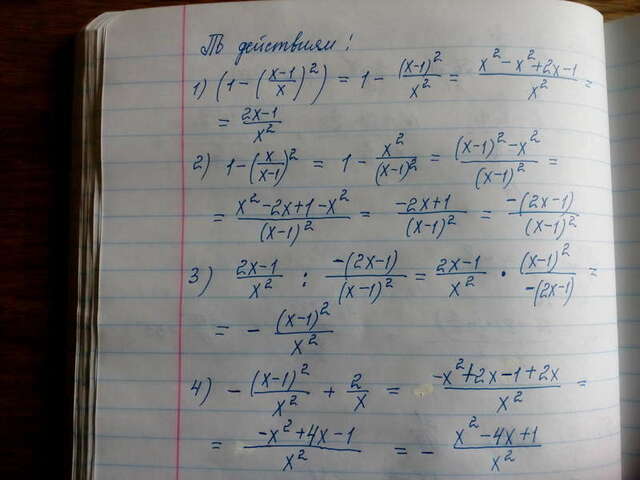 По действиям!
1) (1 - ((x-1)/x)²) = 1 - (x-1)²/x² = (x²-x²+2x-1)/x² =
= (2x-1)/x²
2) 1-(x/(x-1))² = 1 - x²/(x-1)² = ((x-1)²-x²)/(x-1)² =
= (x²-2x+1-x²)/(x-1)² = (-2x+1)/(x-1)² = (-(2x-1))/(x-1)²
3) (2x-1)/x² : (-(2x-1))/(x-1)² = (2x-1)/x² · (x-1)²/(-(2x-1)) =
= - (x-1)²/x²
4) - (x-1)²/x² + 2/x = (-x²+2x-1+2x)/x² =
= (-x²+4x-1)/x² = - (x²-4x+1)/x²